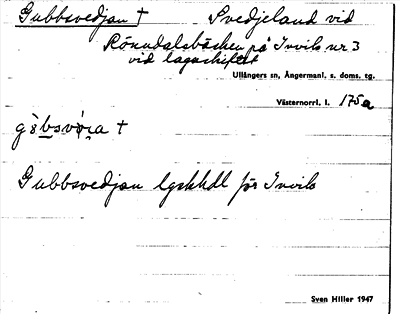 Gubbsvedjan † Svedjeland vid
Rönndalsbäcken på Invik nr 3
vid lagaskiftet
Ullångers sn, Ångermanl. s. doms. tg.
Västernorrl. l. 175a
Gubbsvedjan lgskhdl för Invik
Sven Hiller 1947